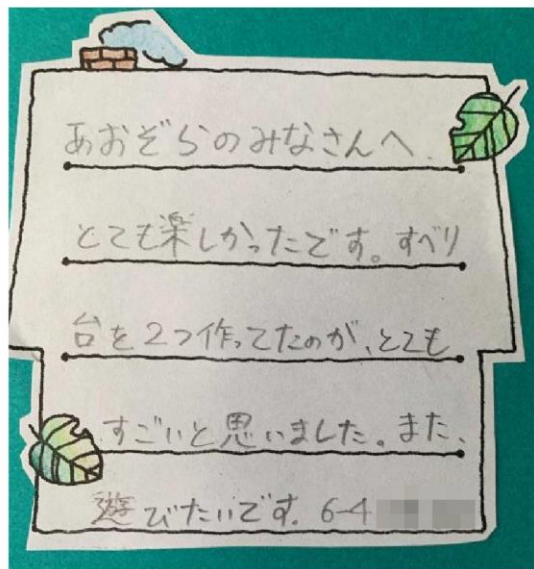 あおぞらのみなさんへ、
とても楽しかったです。すべり
台を2つ作ってたのが、とても
すごいと思いました。また、
遊びたいです。6-4